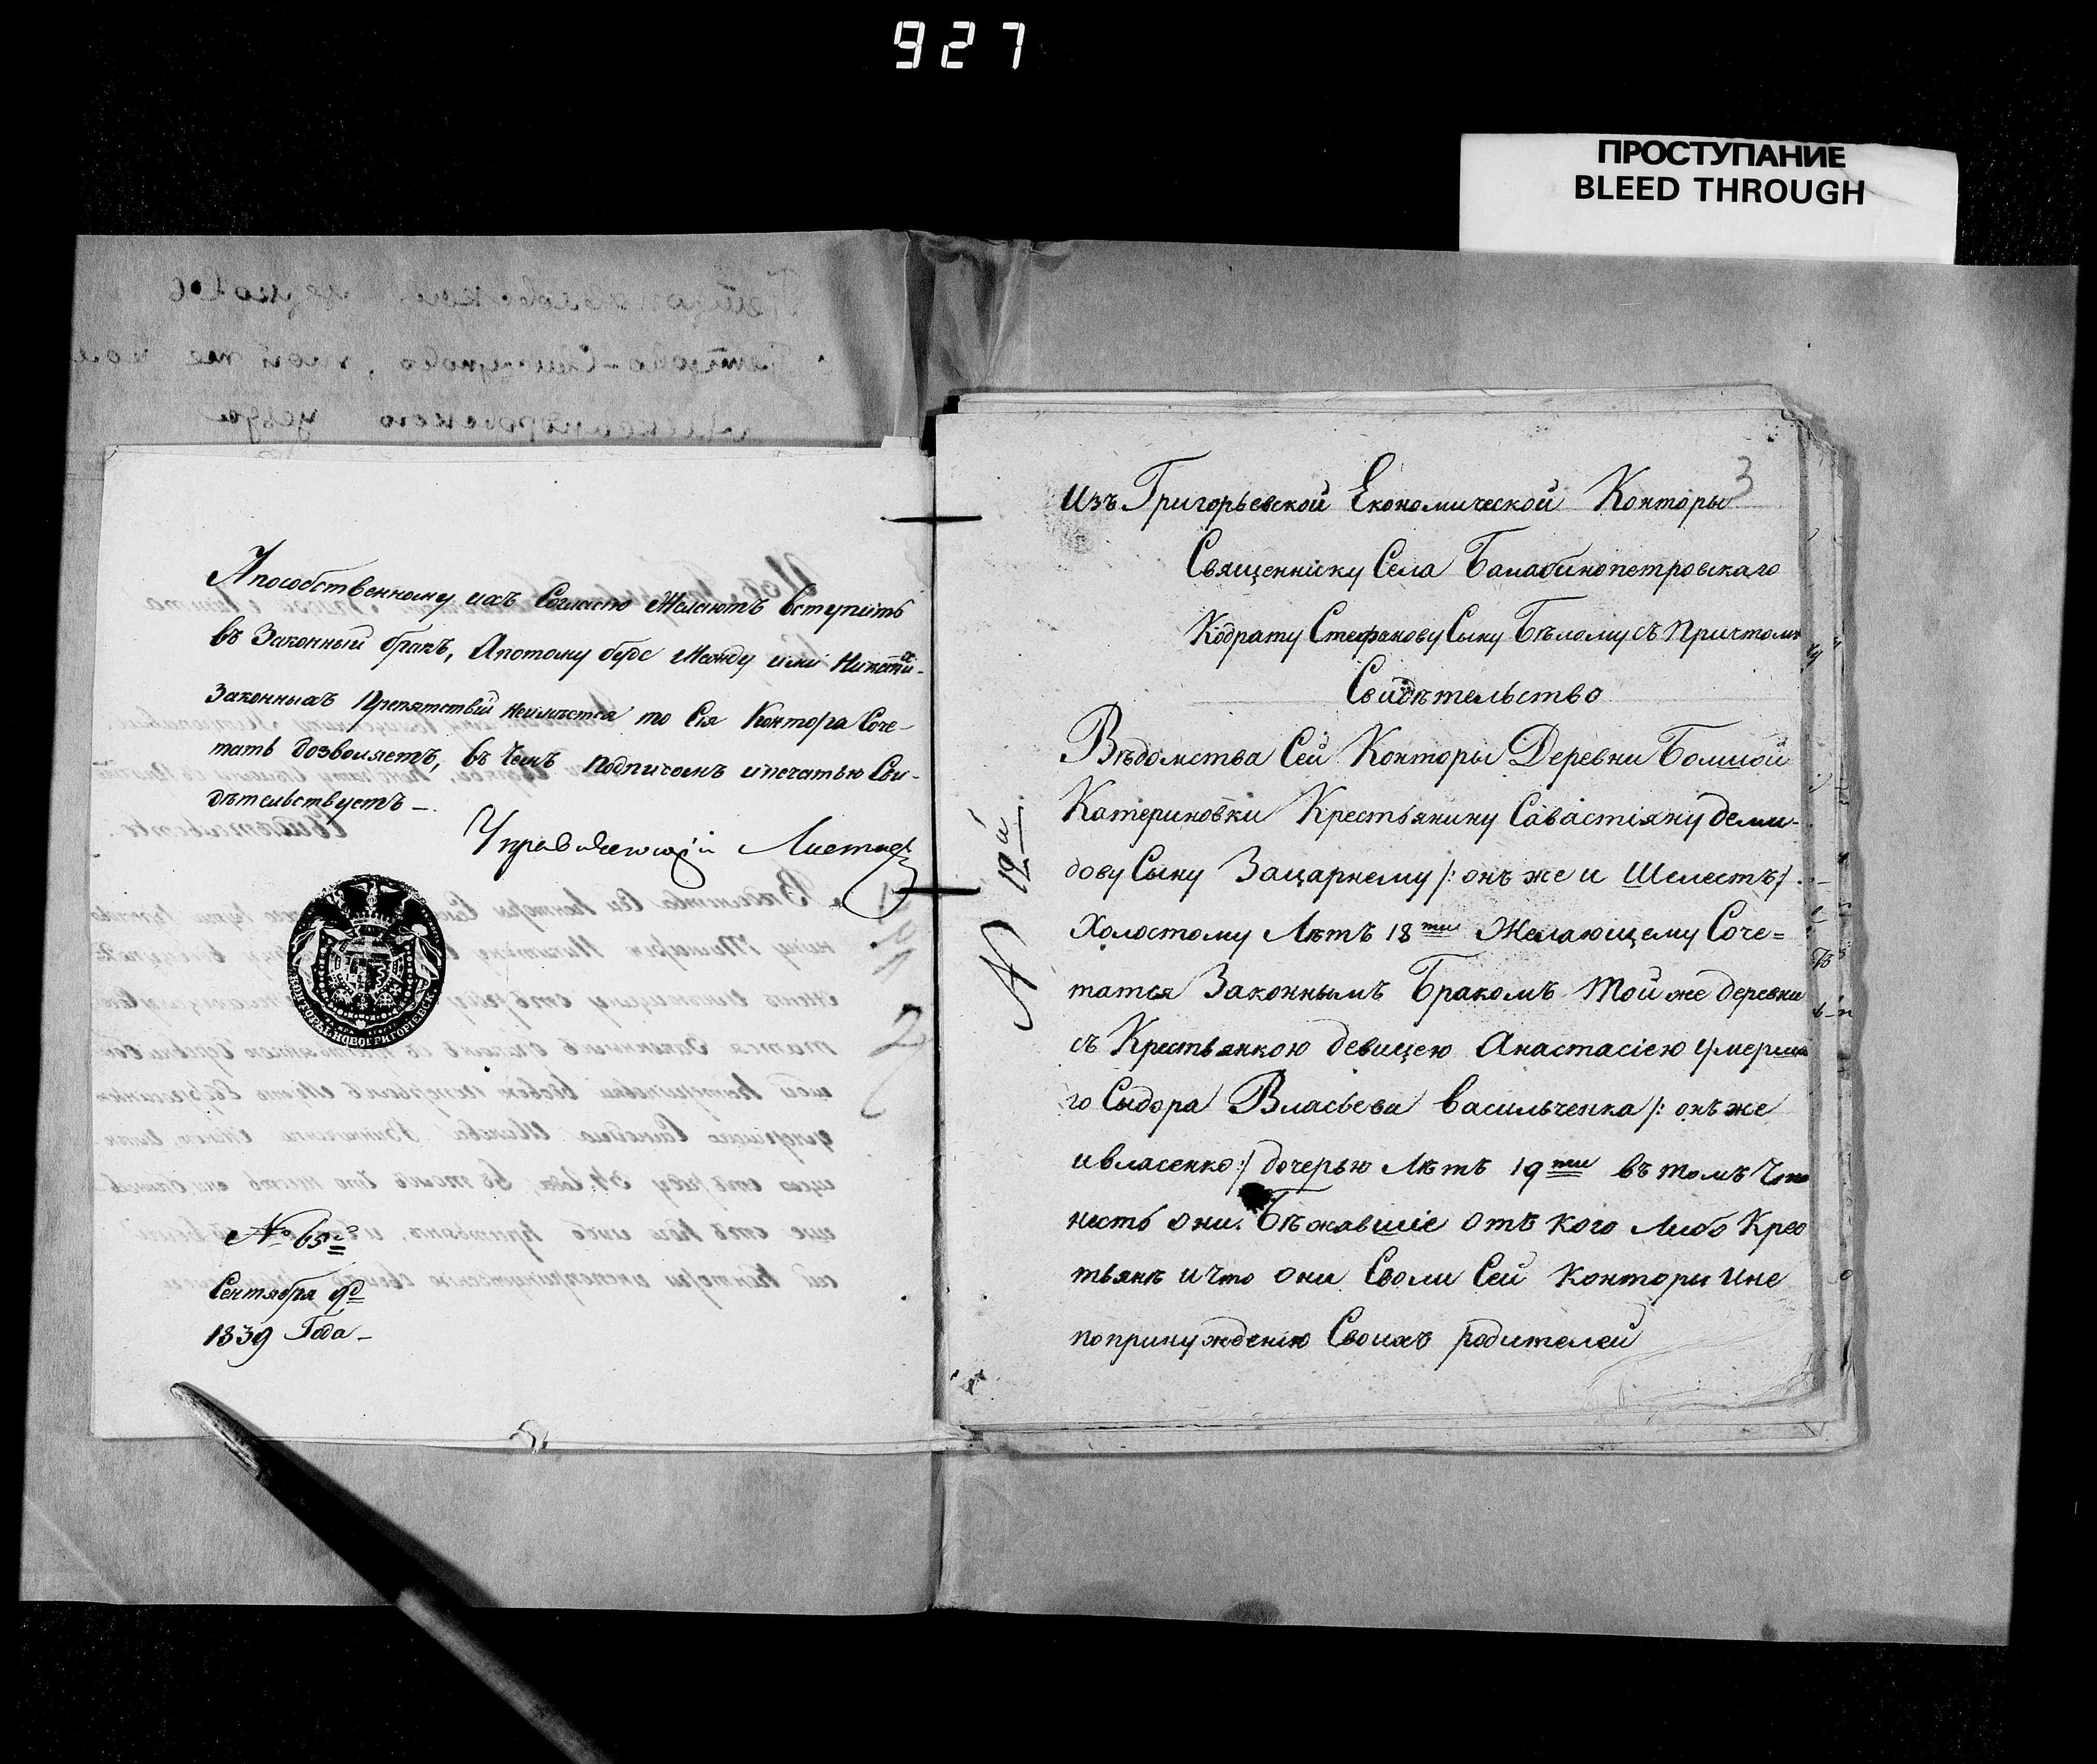 927
ПРОСТУПАНИЕ
BLEED THROUGH
Апособственному ихъ Согласію Желаютъ вступить
въ Законный бракъ, Апотому буде Между ими Никакихъ
Законныхъ Препятствій неимѣется то Сія Контора Соче-
тать дозволяетъ, въ чемъ подписомъ ипечатью Сви-
дѣтельствуетъ —
Управляющій
КОНТОРЫ НОВОГРИГОРІЕВСК.
№ 65й
Сентября 9д
1839 Года —
3
Изъ Григорьевской Економической Конторы
Священнику Села Балабинопетровскаго
Кодрату Стефанову Сыну Бѣлому съ Притчомъ
Свидѣтельство
Вѣдомства Сей Конторы Деревни Болшой
Катериновки Крестьянину Савастіяну деми-
дову Сыну Зацарнему /: онъ же и Шелестъ /
Холостому Лѣтъ 18ти Желающему Соче=
татся Законнымъ Бракомъ той же деревни
съ Крестьянкою девицею Анастасіею умерша
го Сыдора Власьева васильченка /: онъ же
ивласенко :/ дочерью Лѣтъ 19ти въ томъ Что
несть они Бѣжавшіе отъ кого либо Крес
тьянъ ичто они Сволы Сей Конторы ине
попринужденію Своихъ родителей
№ 12й